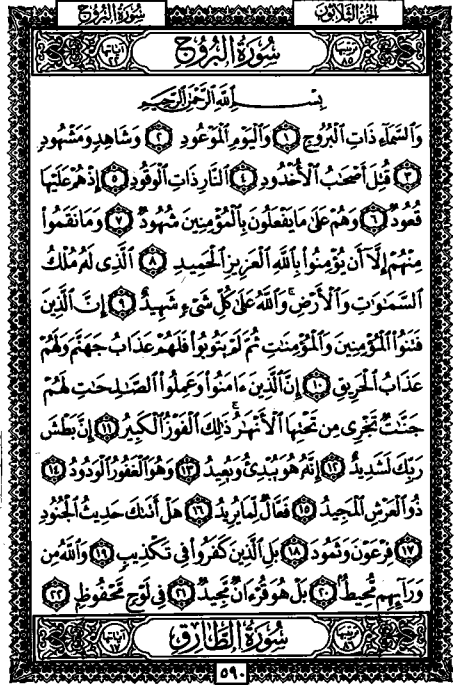 الجزء الثلاثون سورة البروج
ترتيبها ٨٥ سُورَةُ البُرُوجِ آياتها ٢٢
بِسْمِ اللَّهِ الرَّحْمَٰنِ الرَّحِيمِ
وَالسَّمَاءِ ذَاتِ الْبُرُوجِ ١ وَالْيَوْمِ الْمَوْعُودِ ٢ وَشَاهِدٍ وَمَشْهُودٍ
٣ قُتِلَ أَصْحَٰبُ الْأُخْدُودِ ٤ النَّارِ ذَاتِ الْوَقُودِ ٥ إِذْ هُمْ عَلَيْهَا
قُعُودٌ ٦ وَهُمْ عَلَىٰ مَا يَفْعَلُونَ بِالْمُؤْمِنِينَ شُهُودٌ ٧ وَمَا نَقَمُوا
مِنْهُمْ إِلَّا أَن يُؤْمِنُوا بِاللَّهِ الْعَزِيزِ الْحَمِيدِ ٨ الَّذِي لَهُ مُلْكُ
السَّمَٰوَٰتِ وَالْأَرْضِ ۚ وَاللَّهُ عَلَىٰ كُلِّ شَيْءٍ شَهِيدٌ ٩ إِنَّ الَّذِينَ
فَتَنُوا الْمُؤْمِنِينَ وَالْمُؤْمِنَٰتِ ثُمَّ لَمْ يَتُوبُوا فَلَهُمْ عَذَابُ جَهَنَّمَ وَلَهُمْ
عَذَابُ الْحَرِيقِ ١٠ إِنَّ الَّذِينَ ءَامَنُوا وَعَمِلُوا الصَّٰلِحَٰتِ لَهُمْ
جَنَّٰتٌ تَجْرِي مِن تَحْتِهَا الْأَنْهَٰرُ ۚ ذَٰلِكَ الْفَوْزُ الْكَبِيرُ ١١ إِنَّ بَطْشَ
رَبِّكَ لَشَدِيدٌ ١٢ إِنَّهُ هُوَ يُبْدِئُ وَيُعِيدُ ١٣ وَهُوَ الْغَفُورُ الْوَدُودُ ١٤
ذُو الْعَرْشِ الْمَجِيدُ ١٥ فَعَّالٌ لِّمَا يُرِيدُ ١٦ هَلْ أَتَىٰكَ حَدِيثُ الْجُنُودِ
١٧ فِرْعَوْنَ وَثَمُودَ ١٨ بَلِ الَّذِينَ كَفَرُوا فِي تَكْذِيبٍ ١٩ وَاللَّهُ مِن
وَرَائِهِم مُّحِيطٌ ٢٠ بَلْ هُوَ قُرْءَانٌ مَّجِيدٌ ٢١ فِي لَوْحٍ مَّحْفُوظٍ ٢٢
ترتيبها ٨٦ سُورَةُ الطَّارِقِ آياتها ١٧
٥٩٠